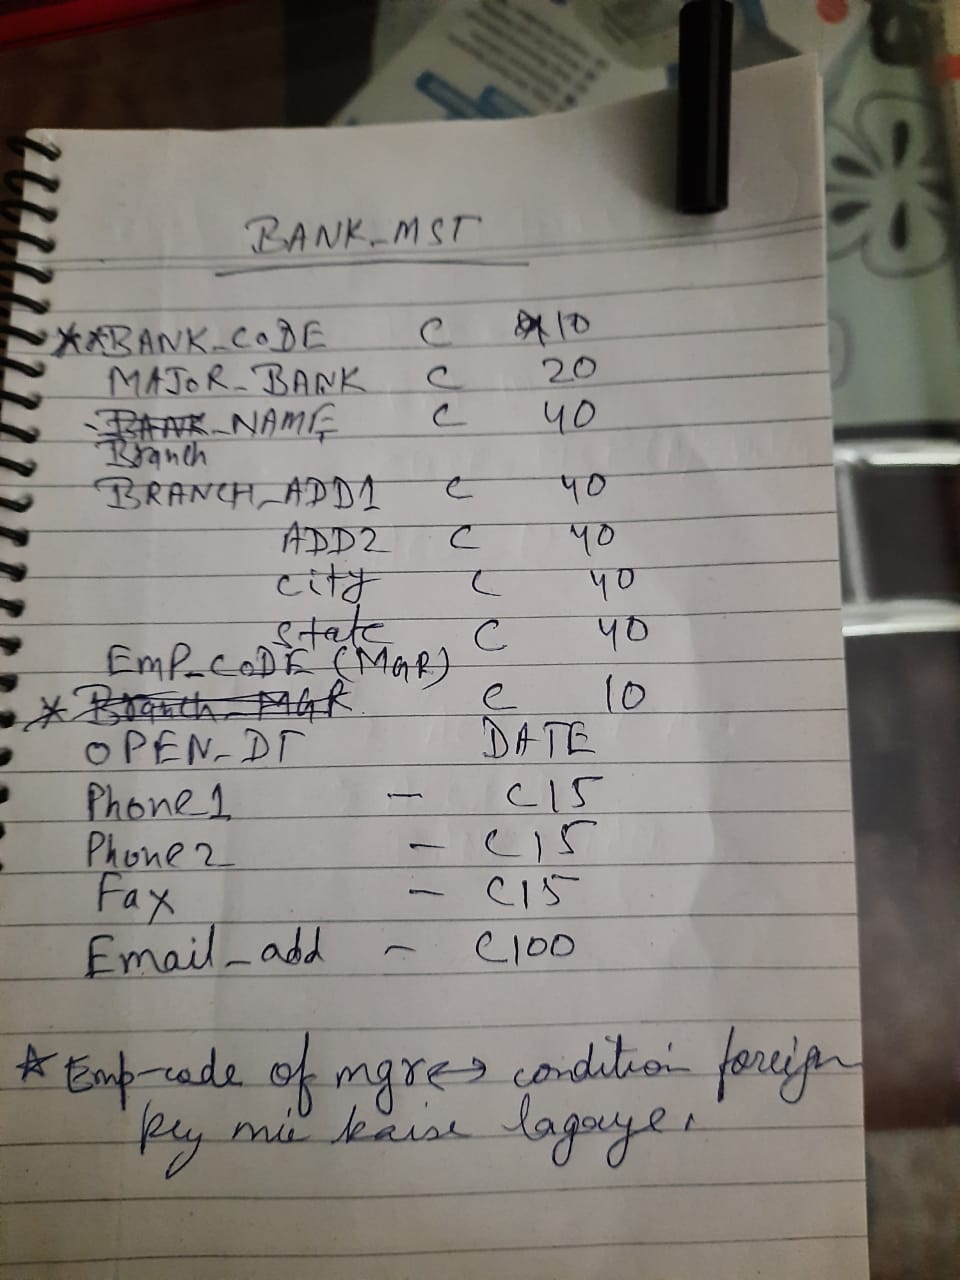 BANK_MST
**BANK_CODE C 10
MAJOR_BANK C 20
BANK_NAME C 40
Branch
BRANCH_ADD1 C 40
ADD2 C 40
city C 40
state C 40
EMP_CODE (MGR)
* Branch_MGR C 10
OPEN_DT DATE
Phone_1 - C15
Phone 2 - C15
Fax - C15
Email_add - C100
* Emp-code of mgr ↔ condition foreign
key mie kaise lagaye.